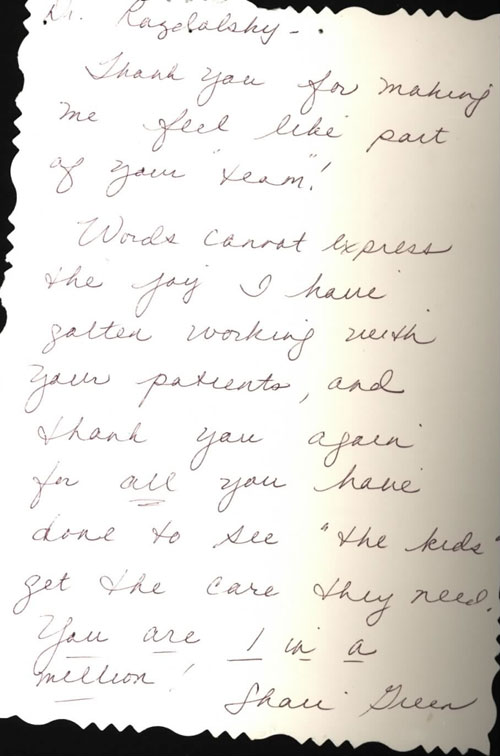 Dr. Razdolsky - .
Thank you for making
me feel like part
of your "team"!
Words cannot express
the joy I have
gotten working with
your patients, and
thank you again
for all you have
done to see "the kids"
get the care they need.
You are 1 in a
million! Shari Green